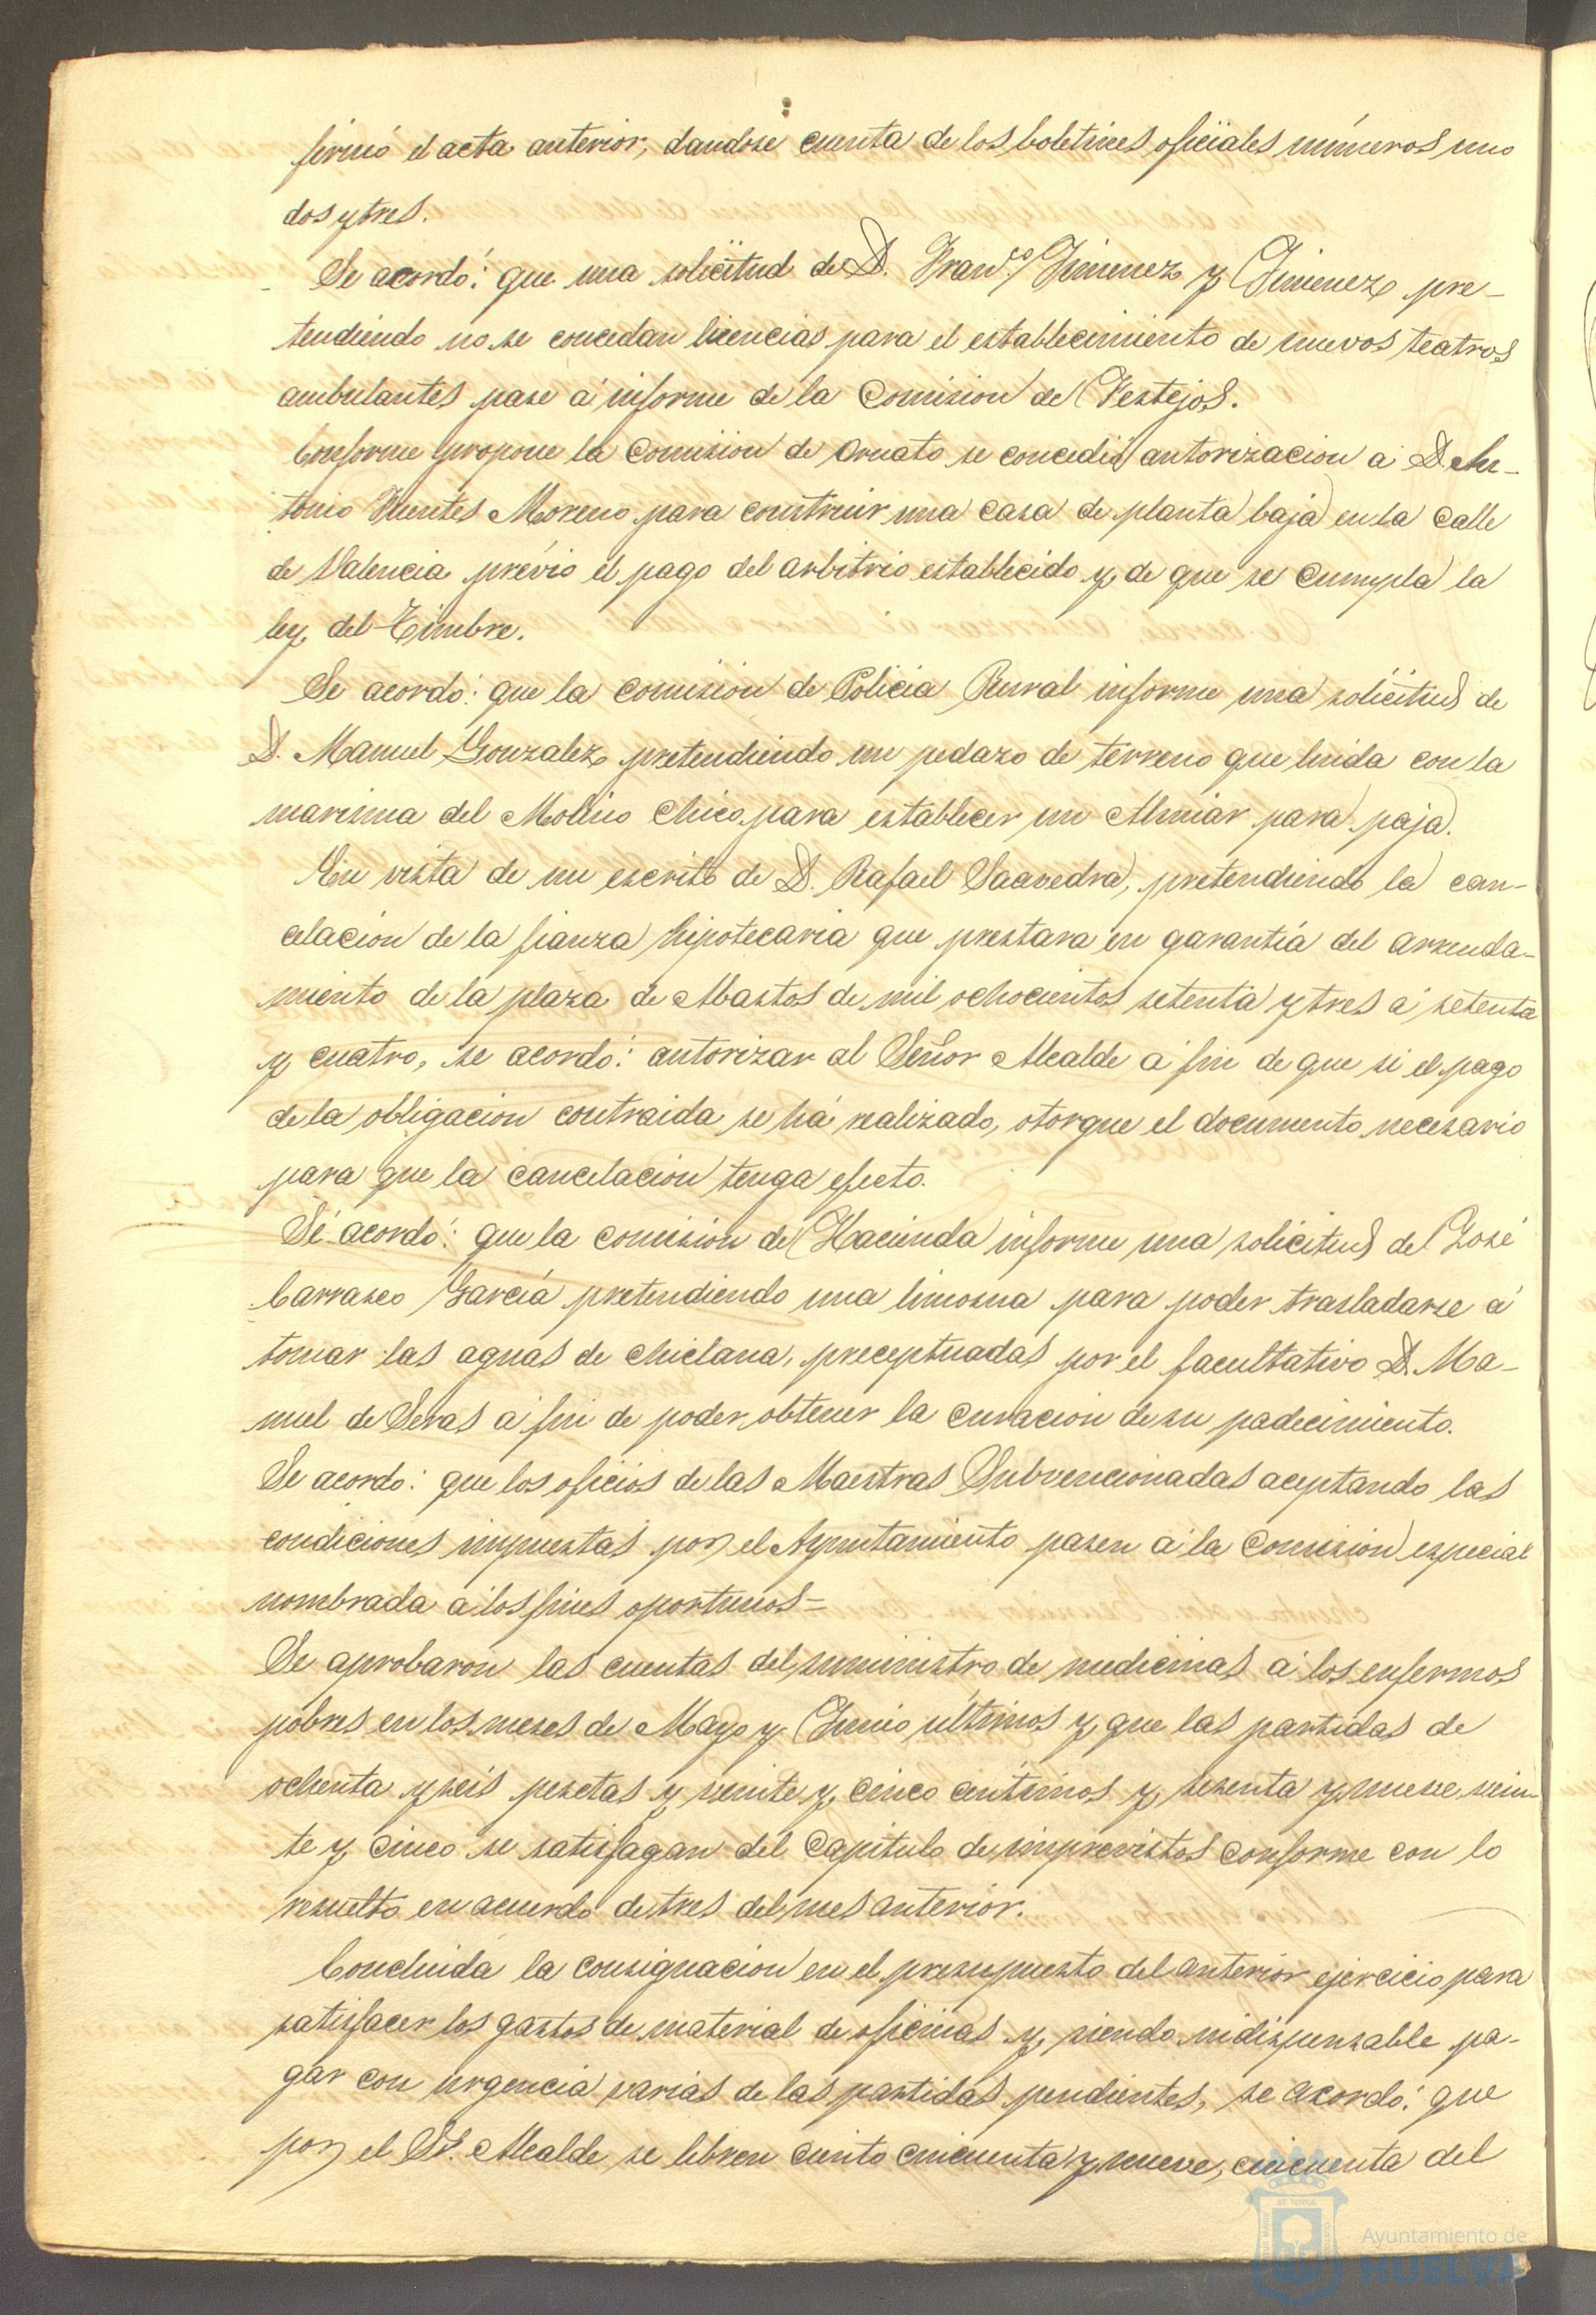 firmó el acta anterior, dandose cuenta de los boletines oficiales números uno
dos y tres.
Se acordó: que una solicitud de D. Franco. Jimenez y Jimenez pre-
tendiendo no se concedan licencias para el establecimiento de nuevos teatros
ambulantes pase á informe de la Comision de Festejos.
Conforme propone la Comision de Ornato se concedió autorizacion a D. An-
tonio Fuentes Moreno para construir una casa de planta baja en la Calle
de Valencia prévio el pago del arbitrio establecido y de que se cumpla la
ley del Timbre.
Se acordó: que la comision de Policia Rural informe una solicitud de
D. Manuel Gonzalez pretendiendo un pedazo de terreno que linda con la
marisma del Molino Chico para establecer un Almiar para paja.
En vista de un escrito de D. Rafael Saavedra, pretendiendo la can-
celacion de la fianza hipotecaria que prestara en garantía del arrenda-
miento de la plaza de Abastos de mil ochocientos setenta y tres á setenta
y cuatro, se acordó: autorizar al Señor Alcalde á fin de que si el pago
de la obligacion contraida se há realizado, otorgue el documento necesario
para que la cancelacion tenga efecto.
Se acordó: que la comision de Hacienda informe una solicitud de José
Carrasco García pretendiendo una limosna para poder trasladarse á
tomar las aguas de Chiclana, preceptuadas por el facultativo D. Ma-
nuel de Seras á fin de poder obtener la curacion de su padecimiento.
Se acordo: que los oficios de las Maestras Subvencionadas aceptando las
condiciones impuestas por el Ayuntamiento pasen á la Comision especial
nombrada a los fines oportunos=
Se aprobaron las cuentas del suministro de medicinas á los enfermos
pobres en los meses de Mayo y Junio últimos y que las partidas de
ochenta y seis pesetas y veinte y cinco centimos y sesenta y nueve, vein-
te y cinco se satisfagan del Capitulo de imprevistos conforme con lo
resuelto en acuerdo de tres del mes anterior.
Concluida la consignacion en el presupuesto del anterior ejercicio para
satisfacer los gastos de material de oficinas y siendo indispensable pa-
gar con urgencia varias de las partidas pendientes, se acordó: que
por el Sr. Alcalde se libren ciento cincuenta y nueve, cincuenta del
Ayuntamiento de
HUELVA